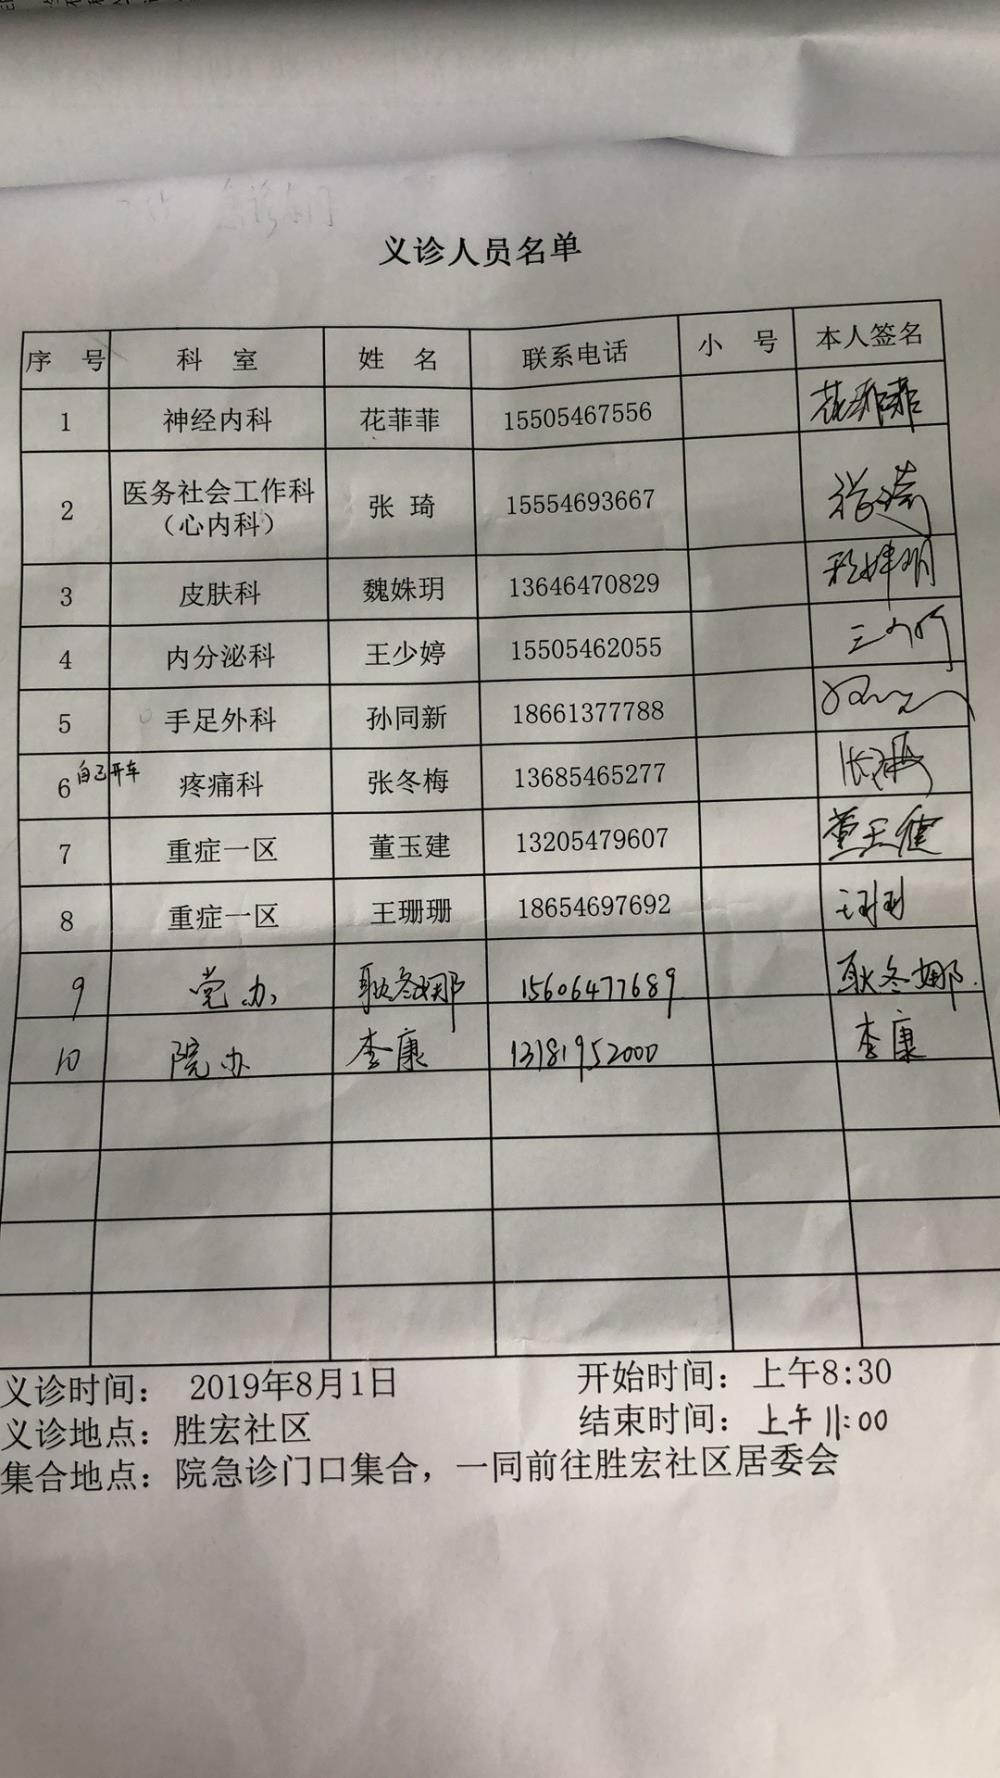 义诊人员名单
序 号 科 室 姓 名 联系电话 小 号 本人签名
1 神经内科 花菲菲 15505467556 花菲菲
2 医务社会工作科（心内科） 张 琦 15554693667 张琦
3 皮肤科 魏姝玥 13646470829
4 内分泌科 王少婷 15505462055
5 手足外科 孙同新 18661377788
6 自己开车 疼痛科 张冬梅 13685465277 张冬梅
7 重症一区 董玉建 13205479607 董玉健
8 重症一区 王珊珊 18654697692 王珊珊
9 党办 耿冬娜 15606477689 耿冬娜.
10 院办 李康 13181952000 李康
义诊时间： 2019年8月1日 开始时间：上午8:30
义诊地点：胜宏社区 结束时间：上午11:00
集合地点：院急诊门口集合，一同前往胜宏社区居委会